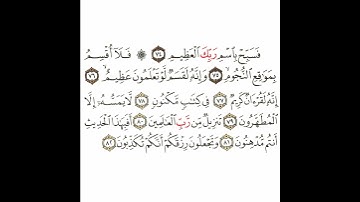 فَسَبِّحْ بِاسْمِ رَبِّكَ الْعَظِيمِ ٧٤ ۞ فَلَا أُقْسِمُ
بِمَوَاقِعِ النُّجُومِ ٧٥ وَإِنَّهُ لَقَسَمٌ لَّوْ تَعْلَمُونَ عَظِيمٌ ٧٦
إِنَّهُ لَقُرْءَانٌ كَرِيمٌ ٧٧ فِي كِتَابٍ مَّكْنُونٍ ٧٨ لَّا يَمَسُّهُ إِلَّا
الْمُطَهَّرُونَ ٧٩ تَنزِيلٌ مِّن رَّبِّ الْعَالَمِينَ ٨٠ أَفَبِهَذَا الْحَدِيثِ
أَنتُم مُّدْهِنُونَ ٨١ وَتَجْعَلُونَ رِزْقَكُمْ أَنَّكُمْ تُكَذِّبُونَ ٨٢